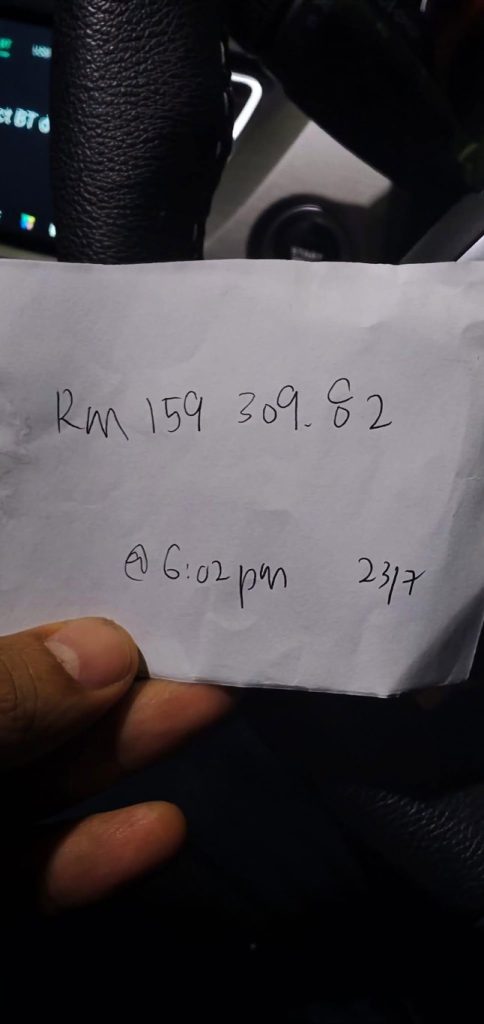 Rm 159 309.82
@ 6:02 pm 23/7